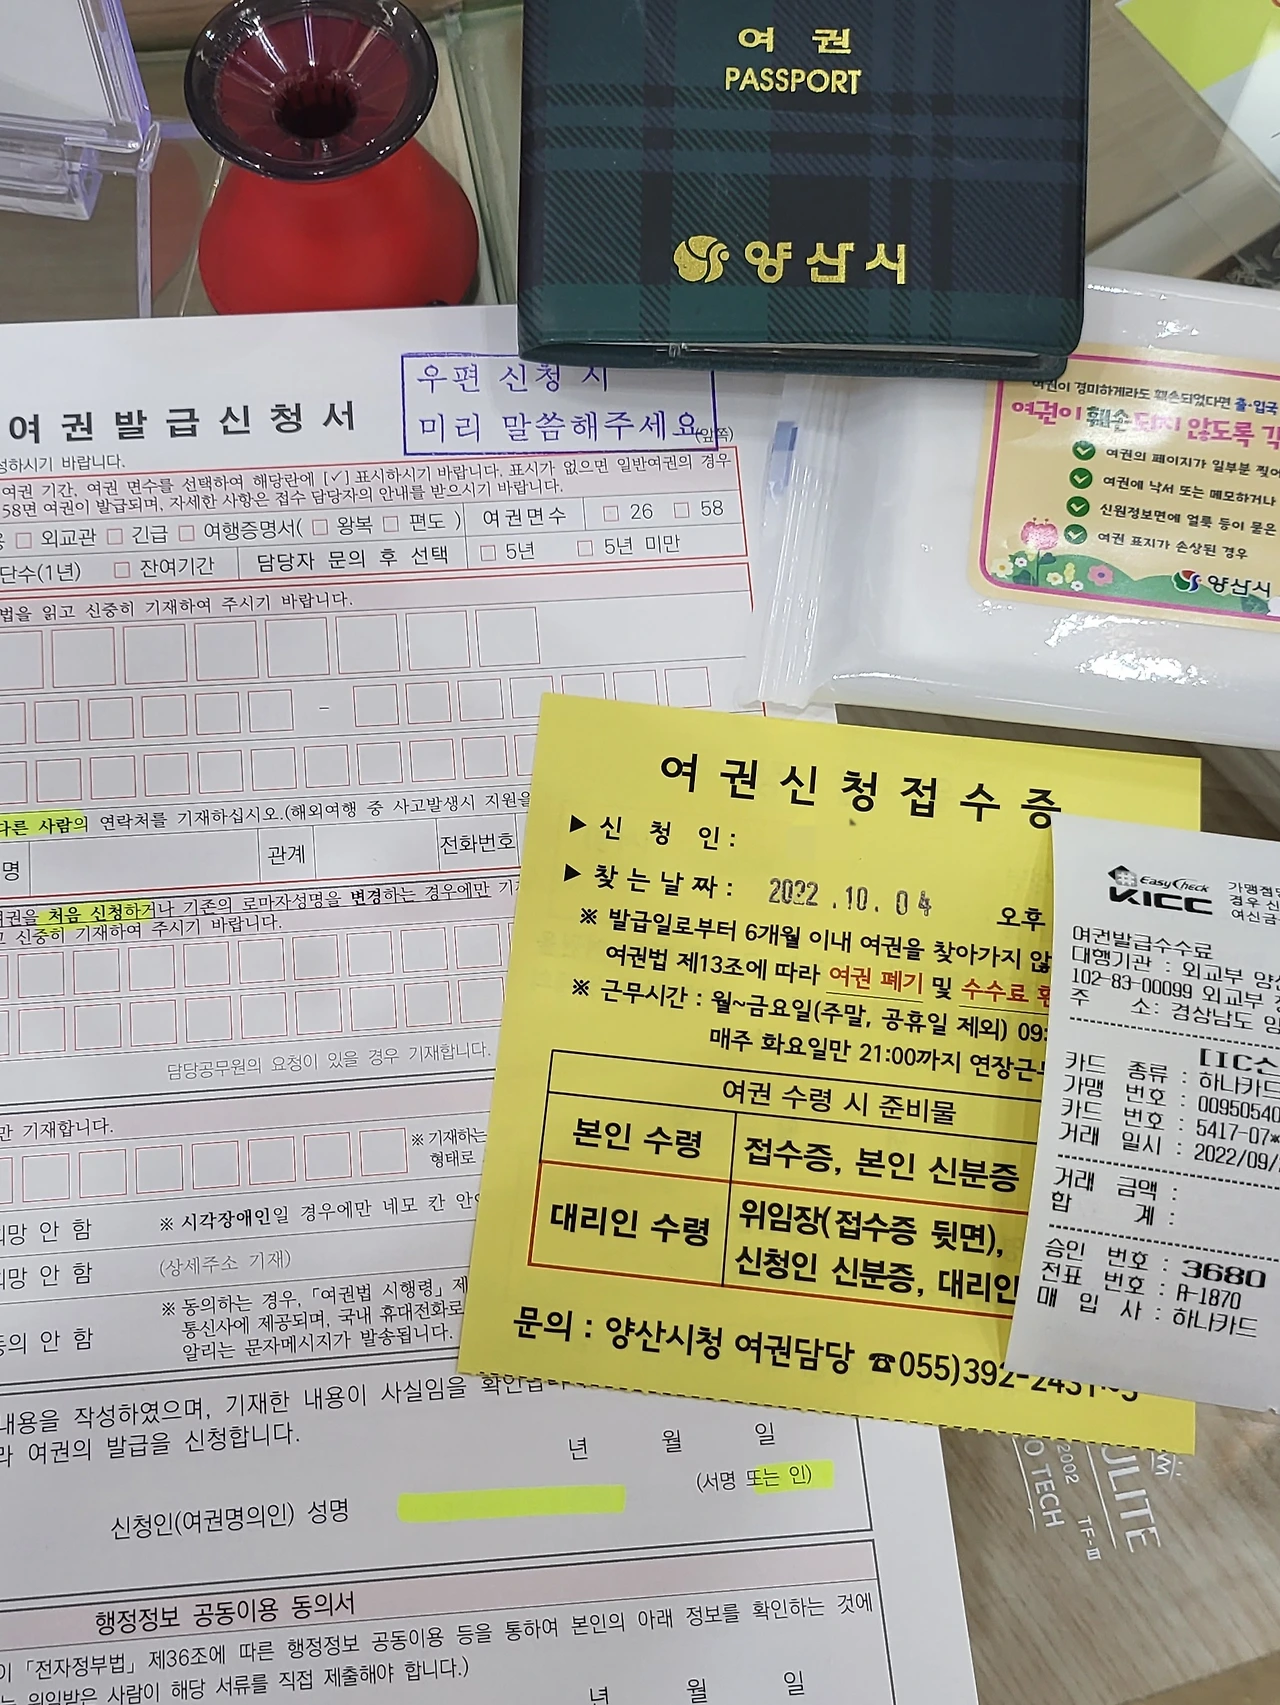 여 권
PASSPORT
양산시
우편 신청 시
미리 말씀해주세요
여권발급신청서
(앞쪽)
성하시기 바랍니다.
여권 기간, 여권 면수를 선택하여 해당란에 [✓] 표시하시기 바랍니다. 표시가 없으면 일반여권의 경우
58면 여권이 발급되며, 자세한 사항은 접수 담당자의 안내를 받으시기 바랍니다.
□ 외교관 □ 긴급 □ 여행증명서( □ 왕복 □ 편도 ) 여권면수 □ 26 □ 58
단수(1년) □ 잔여기간 담당자 문의 후 선택 □ 5년 □ 5년 미만
법을 읽고 신중히 기재하여 주시기 바랍니다.
–
다른 사람의 연락처를 기재하십시오.(해외여행 중 사고발생시 지원을
명 관계 전화번호
여권을 처음 신청하거나 기존의 로마자성명을 변경하는 경우에만 기
고 신중히 기재하여 주시기 바랍니다.
담당공무원의 요청이 있을 경우 기재합니다.
만 기재합니다.
※ 기재하는
형태로
희망 안 함 ※ 시각장애인일 경우에만 네모 칸 안
희망 안 함 (상세주소 기재)
동의 안 함 ※ 동의하는 경우, 「여권법 시행령」 제
통신사에 제공되며, 국내 휴대전화로
알리는 문자메시지가 발송됩니다.
내용을 작성하였으며, 기재한 내용이 사실임을 확인합니
라 여권의 발급을 신청합니다.
년 월 일
신청인(여권명의인) 성명 (서명 또는 인)
행정정보 공동이용 동의서
이 「전자정부법」 제36조에 따른 행정정보 공동이용 등을 통하여 본인의 아래 정보를 확인하는 것에
는 위임받은 사람이 해당 서류를 직접 제출해야 합니다.)
년 월 일
여권이 경미하게라도 훼손되었다면 출·입국
여권이 훼손되지 않도록 각
여권의 페이지가 일부분 찢어
여권에 낙서 또는 메모하거나
신원정보면에 얼룩 등이 묻은
여권 표지가 손상된 경우
양산시
여권신청접수증
▶ 신 청 인 :
▶ 찾는날짜 : 2022.10.04 오후
※ 발급일로부터 6개월 이내 여권을 찾아가지 않
여권법 제13조에 따라 여권 폐기 및 수수료
※ 근무시간 : 월~금요일(주말, 공휴일 제외) 09:
매주 화요일만 21:00까지 연장근
여권 수령 시 준비물
본인 수령 접수증, 본인 신분증
대리인 수령 위임장(접수증 뒷면),
신청인 신분증, 대리인
문의 : 양산시청 여권담당 ☎055)392-2431~5
EasyCheck
KICC
가맹점
경우 신
여신금
여권발급수수료
대행기관 : 외교부 양산
102-83-00099 외교부
주 소: 경상남도 양
[IC
카드 종류 : 하나카드
가맹 번호 : 00950540
카드 번호 : 5417-07*
거래 일시 : 2022/09/
거래 금액 :
합 계 :
승인 번호 : 3680
전표 번호 : A-1870
매 입 사 : 하나카드
ULITE
O TECH
2002
TF-Ⅲ